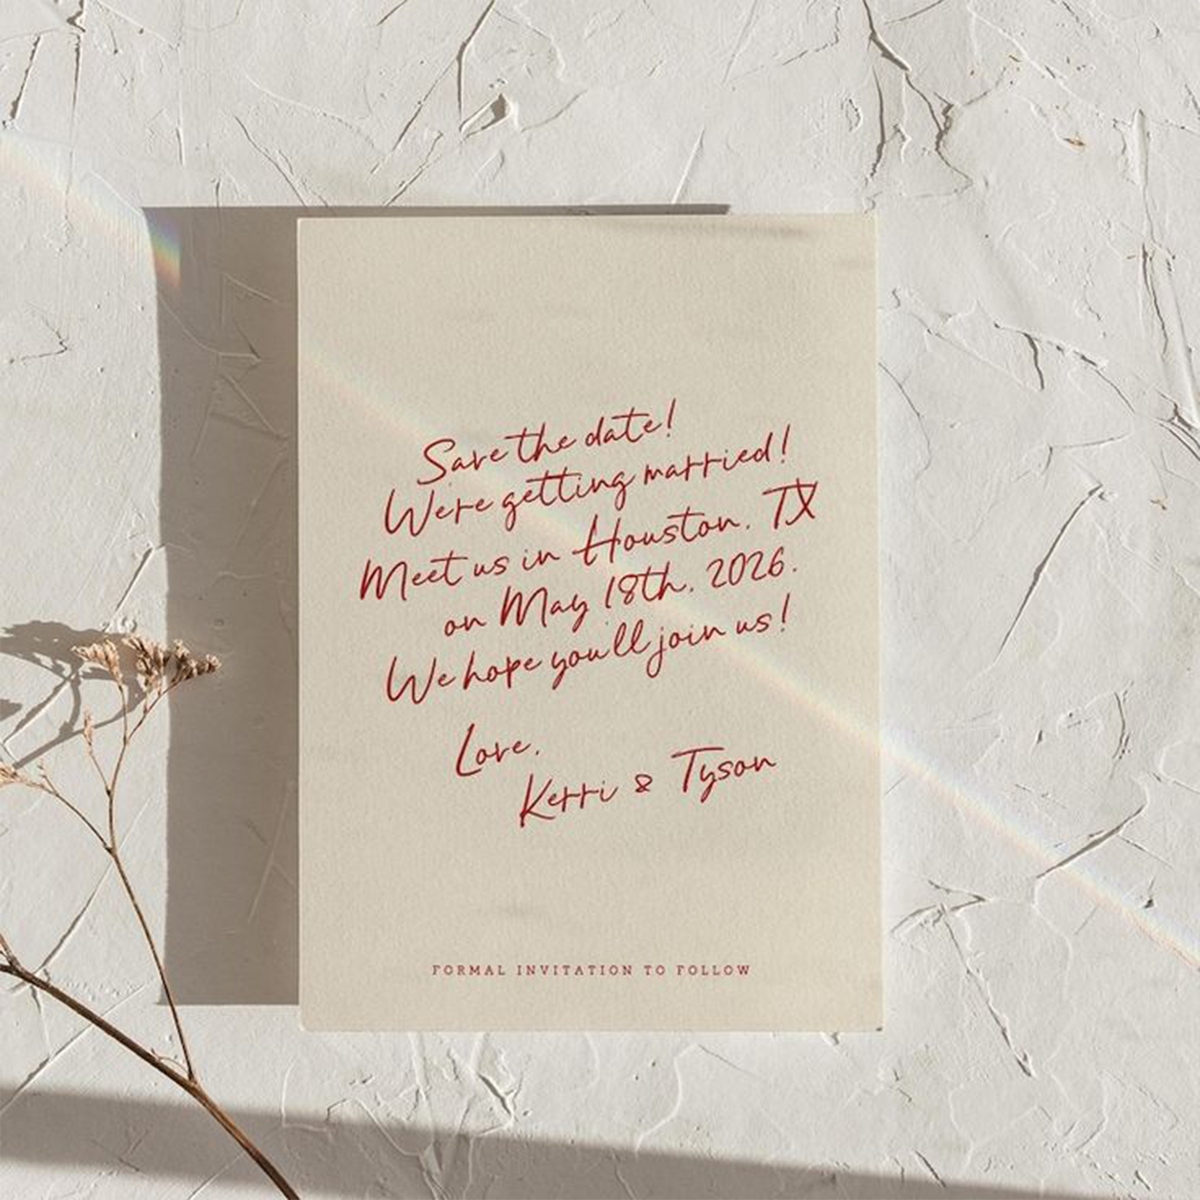 Save the date!
We're getting married!
Meet us in Houston, TX
on May 18th, 2026.
We hope you'll join us!
Love,
Kerri & Tyson
FORMAL INVITATION TO FOLLOW